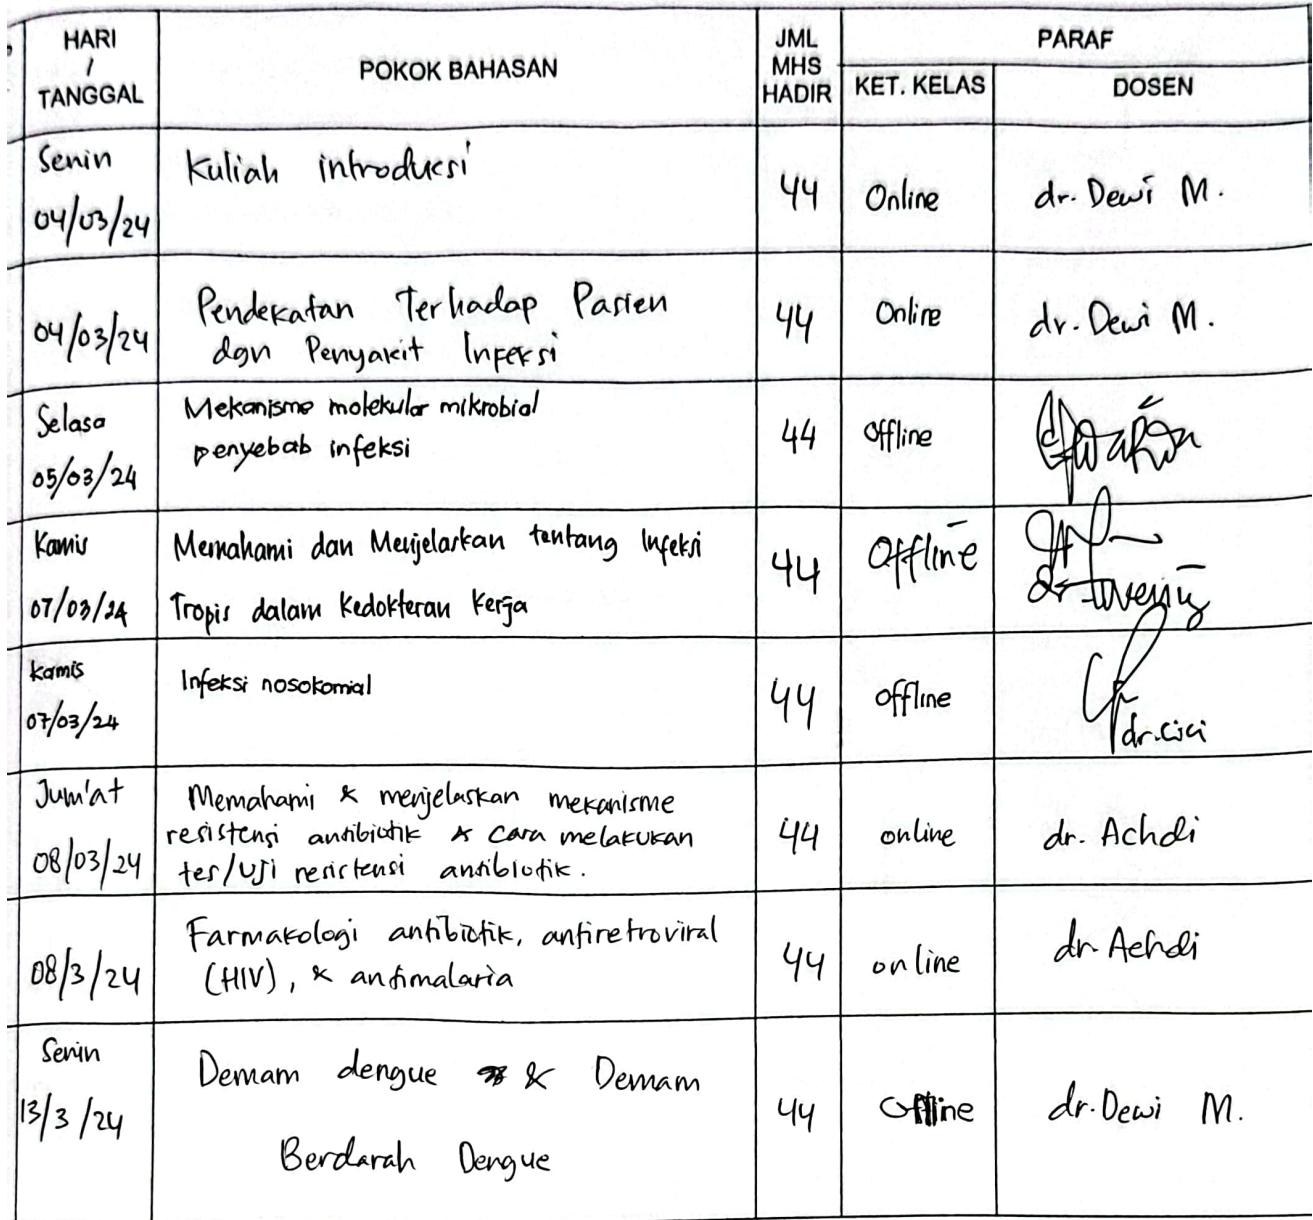 HARI
/
TANGGAL
POKOK BAHASAN
JML
MHS
HADIR
PARAF
KET. KELAS
DOSEN
Senin
04/03/24
Kuliah introduksi
44
Online
dr. Dewi M.
04/03/24
Pendekatan Terhadap Pasien
dgn Penyakit Infeksi
44
Online
dr. Dewi M.
Selasa
05/03/24
Mekanisme molekular mikrobial
penyebab infeksi
44
Offline
Kamis
07/03/24
Memahami dan Menjelaskan tentang Infeksi
Tropis dalam Kedokteran Kerja
44
Offline
dr
Kamis
07/03/24
Infeksi nosokomial
44
offline
dr. Cici
Jum'at
08/03/24
Memahami & menjelaskan mekanisme
resistensi antibiotik & cara melakukan
tes/uji resistensi antibiotik.
44
online
dr. Achdi
08/3/24
Farmakologi antibiotik, antiretroviral
(HIV), & antimalaria
44
online
dr. Achdi
Senin
13/3/24
Demam dengue & Demam
Berdarah Dengue
44
Offline
dr. Dewi M.